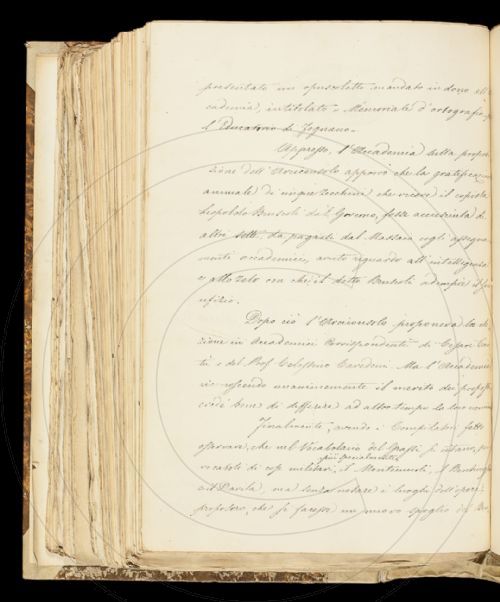 presentato un opuscoletto mandato in dono all'
cademia, intitolato = Memoriale d'ortografia
l'Educatorio di Fognano=
Appresso, l'Accademia sulla propo
sizione dell'Arciconsolo approvò che la gratificaz
annuale di cinque Zecchini che riceve il copista
Leopoldo Brusoli dal Governo, fosse accresciuta di
altri da pagarsi dal Massaio cogli assegna
menti accademici, avuto riguardo all'intelligenza
e allo zelo con che il detto Brusoli adempie il suo
ufizio.
Dopo ciò l'Arciconsolo proponeva la ele
zione in Accademici Corrispondenti di Cesare Can
tù e del Prof. Celestino Cavedoni. Ma l'Accademia
riconoscendo unanimemente il merito dei proposti
credè bene di differire ad altro tempo la loro nomina
Finalmente, avendo i Compilatori fatto
osservare, che nel Vocabolario del Grassi si citano, pe
più specialmente
vocaboli di cose militari, il Montecuccoli, il
e il Davila, ma senza notare i luoghi dell'opere
proposero, che si facesse un nuovo spoglio di